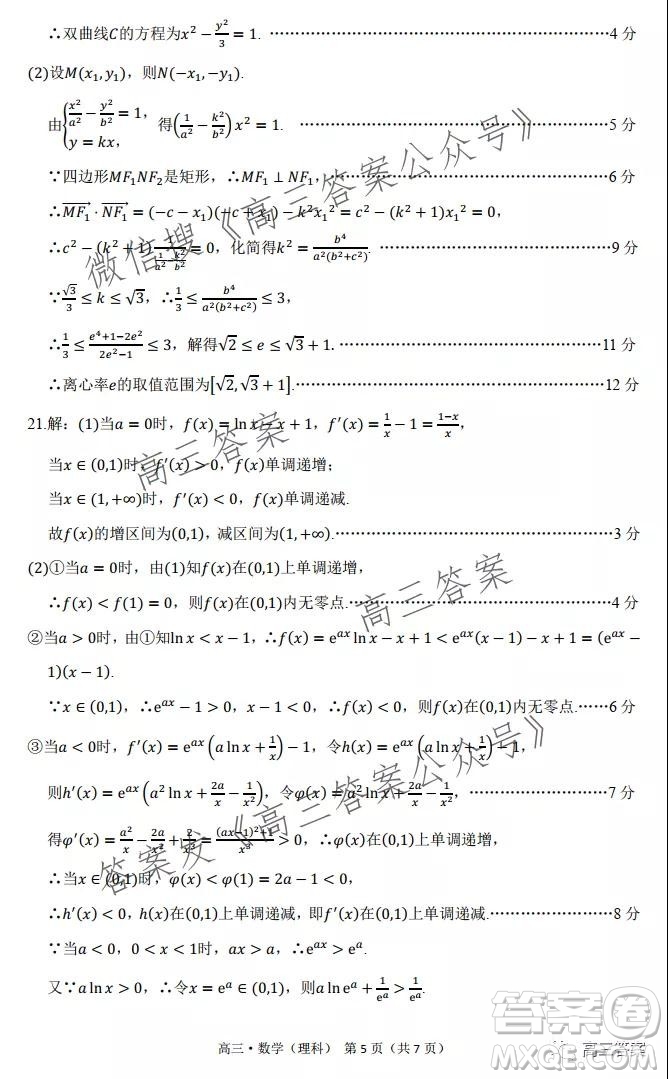 ∴双曲线C的方程为x²−y²/3=1. ……………………4 分
(2)设M(x₁,y₁)，则N(−x₁,−y₁).
由{x²/a²−y²/b²=1, y=kx, 得(1/a²−k²/b²)x²=1. ……………………5 分
∵四边形MF₁NF₂是矩形，∴MF₁⊥NF₁，……………………6 分
∴MF₁→·NF₁→=(−c−x₁)(−c+x₁)−k²x₁²=c²−(k²+1)x₁²=0，
∴c²−(k²+1)·1/(1/a²−k²/b²)=0，化简得k²=b⁴/(a²(b²+c²)). ……………………9 分
∵√3/3≤k≤√3，∴1/3≤b⁴/(a²(b²+c²))≤3，
∴1/3≤(e⁴+1−2e²)/(2e²−1)≤3，解得√2≤e≤√3+1. ……………………11 分
∴离心率e的取值范围为[√2,√3+1]. ……………………12 分
21.解：(1)当a=0时，f(x)=ln x−x+1，f′(x)=1/x−1=(1−x)/x，
当x∈(0,1)时，f′(x)>0，f(x)单调递增；
当x∈(1,+∞)时，f′(x)<0，f(x)单调递减.
故f(x)的增区间为(0,1)，减区间为(1,+∞). ……………………3 分
(2)①当a=0时，由(1)知f(x)在(0,1)上单调递增，
∴f(x)<f(1)=0，则f(x)在(0,1)内无零点. ……………………4 分
②当a>0时，由①知ln x<x−1，∴f(x)=e^{ax}ln x−x+1<e^{ax}(x−1)−x+1=(e^{ax}−
1)(x−1).
∵x∈(0,1)，∴e^{ax}−1>0，x−1<0，∴f(x)<0，则f(x)在(0,1)内无零点. ……6 分
③当a<0时，f′(x)=e^{ax}(a ln x+1/x)−1，令h(x)=e^{ax}(a ln x+1/x)−1，
则h′(x)=e^{ax}(a²ln x+2a/x−1/x²)，令φ(x)=a²ln x+2a/x−1/x²，……………………7 分
得φ′(x)=a²/x−2a/x²+2/x³=((ax−1)²+1)/x³>0，∴φ(x)在(0,1)上单调递增，
∴当x∈(0,1)时，φ(x)<φ(1)=2a−1<0，
∴h′(x)<0，h(x)在(0,1)上单调递减，即f′(x)在(0,1)上单调递减. ……………………8 分
∵当a<0，0<x<1时，ax>a，∴e^{ax}>e^a.
又∵a ln x>0，∴令x=e^a∈(0,1)，则a ln e^a+1/e^a>1/e^a.
高三·数学（理科） 第 5 页（共 7 页）
微信搜《高三答案公众号》
高三答案
高三答案
答案发《高三答案公众号》
答案圈
MXQE.COM
高三答案